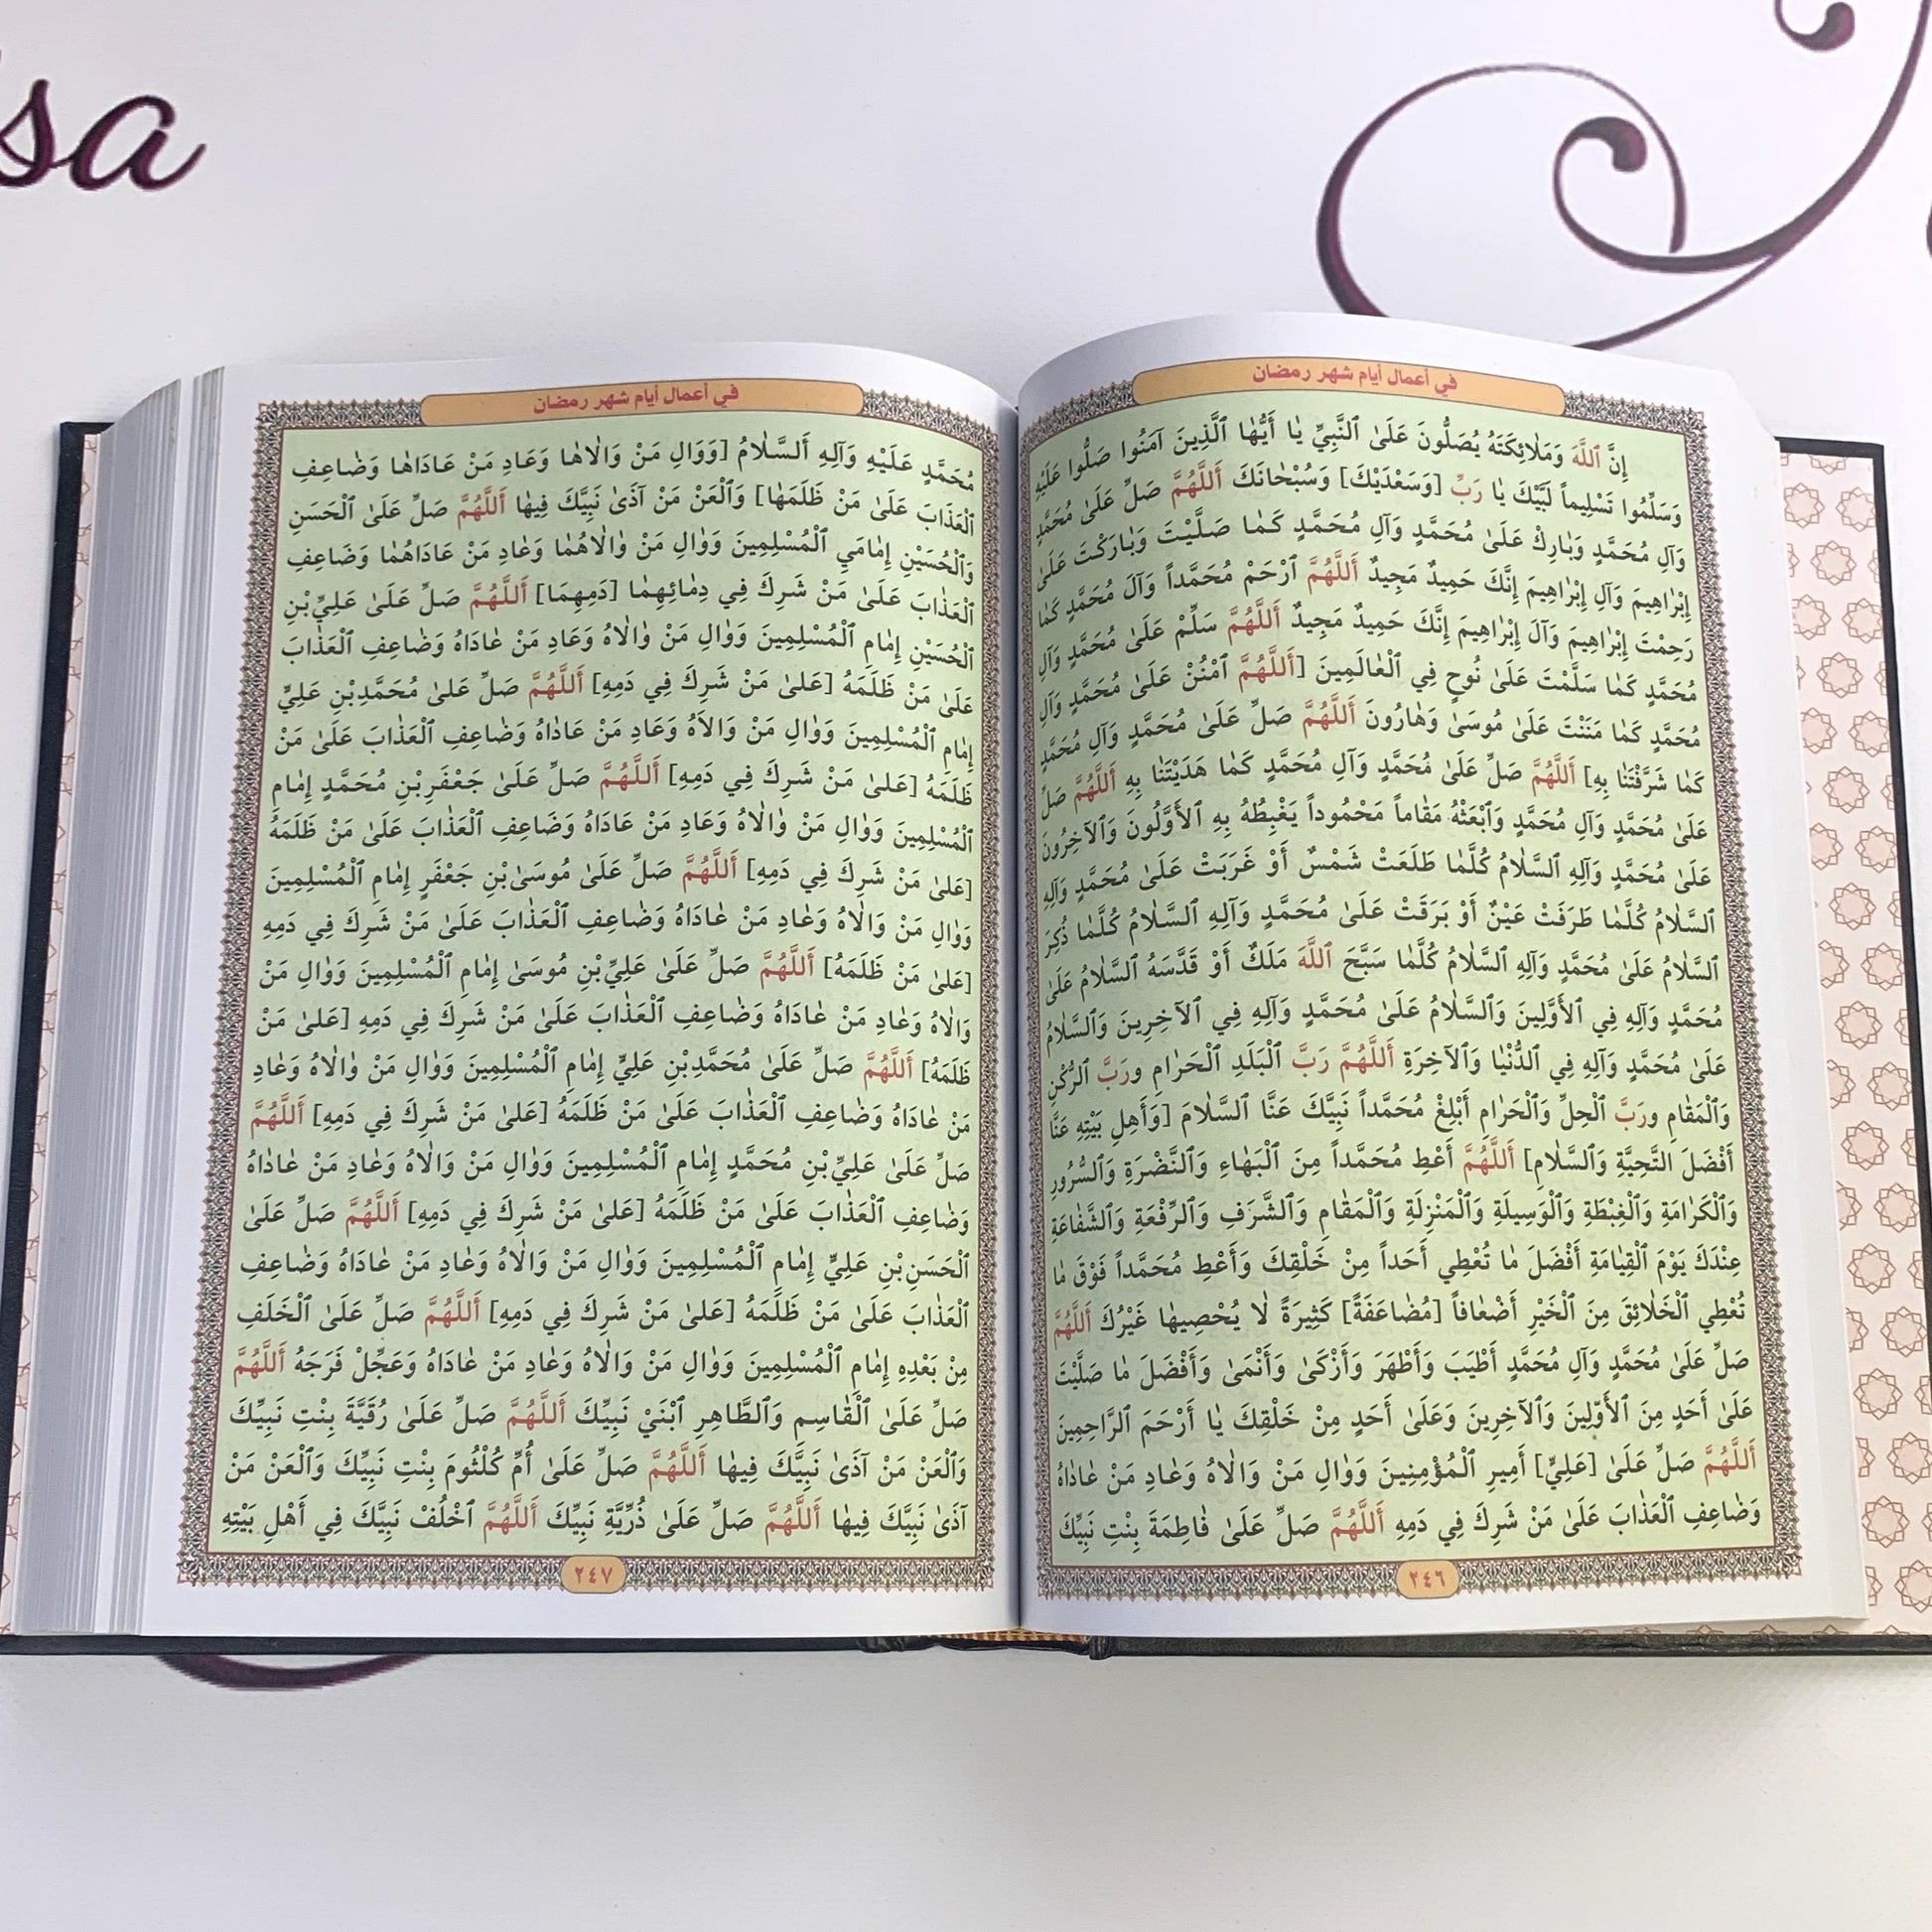 sa
في أعمال أيام شهر رمضان
إِنَّ ٱللَّهَ وَمَلَائِكَتَهُ يُصَلُّونَ عَلَىٰ ٱلنَّبِيِّ يَا أَيُّهَا ٱلَّذِينَ آمَنُوا صَلُّوا عَلَيْهِ
وَسَلِّمُوا تَسْلِيماً لَبَّيْكَ يَا رَبِّ [وَسَعْدَيْكَ] وَسُبْحَانَكَ أَللَّهُمَّ صَلِّ عَلَىٰ مُحَمَّدٍ
وَآلِ مُحَمَّدٍ وَبَارِكْ عَلَىٰ مُحَمَّدٍ وَآلِ مُحَمَّدٍ كَمَا صَلَّيْتَ وَبَارَكْتَ عَلَىٰ
إِبْرَاهِيمَ وَآلِ إِبْرَاهِيمَ إِنَّكَ حَمِيدٌ مَجِيدٌ أَللَّهُمَّ ٱرْحَمْ مُحَمَّداً وَآلَ مُحَمَّدٍ كَمَا
رَحِمْتَ إِبْرَاهِيمَ وَآلَ إِبْرَاهِيمَ إِنَّكَ حَمِيدٌ مَجِيدٌ أَللَّهُمَّ سَلِّمْ عَلَىٰ مُحَمَّدٍ وَآلِ
مُحَمَّدٍ كَمَا سَلَّمْتَ عَلَىٰ نُوحٍ فِي ٱلْعَالَمِينَ [أَللَّهُمَّ ٱمْنُنْ عَلَىٰ مُحَمَّدٍ وَآلِ
مُحَمَّدٍ كَمَا مَنَنْتَ عَلَىٰ مُوسَىٰ وَهَارُونَ أَللَّهُمَّ صَلِّ عَلَىٰ مُحَمَّدٍ وَآلِ مُحَمَّدٍ
كَمَا شَرَّفْتَنَا بِهِ] أَللَّهُمَّ صَلِّ عَلَىٰ مُحَمَّدٍ وَآلِ مُحَمَّدٍ كَمَا هَدَيْتَنَا بِهِ أَللَّهُمَّ صَلِّ
عَلَىٰ مُحَمَّدٍ وَآلِ مُحَمَّدٍ وَٱبْعَثْهُ مَقَاماً مَحْمُوداً يَغْبِطُهُ بِهِ ٱلْأَوَّلُونَ وَٱلْآخِرُونَ
عَلَىٰ مُحَمَّدٍ وَآلِهِ ٱلسَّلَامُ كُلَّمَا طَلَعَتْ شَمْسٌ أَوْ غَرَبَتْ عَلَىٰ مُحَمَّدٍ وَآلِهِ
ٱلسَّلَامُ كُلَّمَا طَرَفَتْ عَيْنٌ أَوْ بَرَقَتْ عَلَىٰ مُحَمَّدٍ وَآلِهِ ٱلسَّلَامُ كُلَّمَا ذُكِرَ
ٱلسَّلَامُ عَلَىٰ مُحَمَّدٍ وَآلِهِ ٱلسَّلَامُ كُلَّمَا سَبَّحَ ٱللَّهَ مَلَكٌ أَوْ قَدَّسَهُ ٱلسَّلَامُ عَلَىٰ
مُحَمَّدٍ وَآلِهِ فِي ٱلْأَوَّلِينَ وَٱلسَّلَامُ عَلَىٰ مُحَمَّدٍ وَآلِهِ فِي ٱلْآخِرِينَ وَٱلسَّلَامُ
عَلَىٰ مُحَمَّدٍ وَآلِهِ فِي ٱلدُّنْيَا وَٱلْآخِرَةِ أَللَّهُمَّ رَبَّ ٱلْبَلَدِ ٱلْحَرَامِ ورَبَّ ٱلرُّكْنِ
وَٱلْمَقَامِ ورَبَّ ٱلْحِلِّ وَٱلْحَرَامِ أَبْلِغْ مُحَمَّداً نَبِيَّكَ عَنَّا ٱلسَّلَامَ [وَأَهلِ بَيْتِهِ عَنَّا
أَفْضَلَ التَّحِيَّةِ وَٱلسَّلَامِ] أَللَّهُمَّ أَعْطِ مُحَمَّداً مِنَ ٱلْبَهَاءِ وَٱلنَّضْرَةِ وَٱلسُّرُورِ
وَٱلْكَرَامَةِ وَٱلْغِبْطَةِ وَٱلْوَسِيلَةِ وَٱلْمَنْزِلَةِ وَٱلْمَقَامِ وَٱلشَّرَفِ وَٱلرِّفْعَةِ وَٱلشَّفَاعَةِ
عِنْدَكَ يَوْمَ ٱلْقِيَامَةِ أَفْضَلَ مَا تُعْطِي أَحَداً مِنْ خَلْقِكَ وَأَعْطِ مُحَمَّداً فَوْقَ مَا
تُعْطِي ٱلْخَلَائِقَ مِنَ ٱلْخَيْرِ أَضْعَافاً [مُضَاعَفَةً] كَثِيرَةً لَا يُحْصِيهَا غَيْرُكَ أَللَّهُمَّ
صَلِّ عَلَىٰ مُحَمَّدٍ وَآلِ مُحَمَّدٍ أَطْيَبَ وَأَطْهَرَ وَأَزْكَىٰ وَأَنْمَىٰ وَأَفْضَلَ مَا صَلَّيْتَ
عَلَىٰ أَحَدٍ مِنَ ٱلْأَوَّلِينَ وَٱلْآخِرِينَ وَعَلَىٰ أَحَدٍ مِنْ خَلْقِكَ يَا أَرْحَمَ ٱلرَّاحِمِينَ
أَللَّهُمَّ صَلِّ عَلَىٰ [عَلِيٍّ] أَمِيرِ ٱلْمُؤْمِنِينَ وَوَالِ مَنْ وَالَاهُ وَعَادِ مَنْ عَادَاهُ
وَضَاعِفِ ٱلْعَذَابَ عَلَىٰ مَنْ شَرِكَ فِي دَمِهِ أَللَّهُمَّ صَلِّ عَلَىٰ فَاطِمَةَ بِنْتِ نَبِيِّكَ
٢٤٦
في أعمال أيام شهر رمضان
مُحَمَّدٍ عَلَيْهِ وَآلِهِ ٱلسَّلَامُ [وَوَالِ مَنْ وَالَاهَا وَعَادِ مَنْ عَادَاهَا وَضَاعِفِ
ٱلْعَذَابَ عَلَىٰ مَنْ ظَلَمَهَا] وَٱلْعَنْ مَنْ آذَىٰ نَبِيَّكَ فِيهَا أَللَّهُمَّ صَلِّ عَلَىٰ ٱلْحَسَنِ
وَٱلْحُسَيْنِ إِمَامَيِ ٱلْمُسْلِمِينَ وَوَالِ مَنْ وَالَاهُمَا وَعَادِ مَنْ عَادَاهُمَا وَضَاعِفِ
ٱلْعَذَابَ عَلَىٰ مَنْ شَرِكَ فِي دِمَائِهِمَا [دَمِهِمَا] أَللَّهُمَّ صَلِّ عَلَىٰ عَلِيِّ بْنِ
ٱلْحُسَيْنِ إِمَامِ ٱلْمُسْلِمِينَ وَوَالِ مَنْ وَالَاهُ وَعَادِ مَنْ عَادَاهُ وَضَاعِفِ ٱلْعَذَابَ
عَلَىٰ مَنْ ظَلَمَهُ [عَلىٰ مَنْ شَرِكَ فِي دَمِهِ] أَللَّهُمَّ صَلِّ عَلىٰ مُحَمَّدِ بْنِ عَلِيٍّ
إِمَامِ ٱلْمُسْلِمِينَ وَوَالِ مَنْ وَالَاهُ وَعَادِ مَنْ عَادَاهُ وَضَاعِفِ ٱلْعَذَابَ عَلَىٰ مَنْ
ظَلَمَهُ [عَلىٰ مَنْ شَرِكَ فِي دَمِهِ] أَللَّهُمَّ صَلِّ عَلَىٰ جَعْفَرِ بْنِ مُحَمَّدٍ إِمَامِ
ٱلْمُسْلِمِينَ وَوَالِ مَنْ وَالَاهُ وَعَادِ مَنْ عَادَاهُ وَضَاعِفِ ٱلْعَذَابَ عَلَىٰ مَنْ ظَلَمَهُ
[عَلىٰ مَنْ شَرِكَ فِي دَمِهِ] أَللَّهُمَّ صَلِّ عَلَىٰ مُوسَىٰ بْنِ جَعْفَرٍ إِمَامِ ٱلْمُسْلِمِينَ
وَوَالِ مَنْ وَالَاهُ وَعَادِ مَنْ عَادَاهُ وَضَاعِفِ ٱلْعَذَابَ عَلَىٰ مَنْ شَرِكَ فِي دَمِهِ
[عَلىٰ مَنْ ظَلَمَهُ] أَللَّهُمَّ صَلِّ عَلَىٰ عَلِيِّ بْنِ مُوسَىٰ إِمَامِ ٱلْمُسْلِمِينَ وَوَالِ مَنْ
وَالَاهُ وَعَادِ مَنْ عَادَاهُ وَضَاعِفِ ٱلْعَذَابَ عَلَىٰ مَنْ شَرِكَ فِي دَمِهِ [عَلىٰ مَنْ
ظَلَمَهُ] أَللَّهُمَّ صَلِّ عَلَىٰ مُحَمَّدِ بْنِ عَلِيٍّ إِمَامِ ٱلْمُسْلِمِينَ وَوَالِ مَنْ وَالَاهُ وَعَادِ
مَنْ عَادَاهُ وَضَاعِفِ ٱلْعَذَابَ عَلَىٰ مَنْ ظَلَمَهُ [عَلىٰ مَنْ شَرِكَ فِي دَمِهِ] أَللَّهُمَّ
صَلِّ عَلَىٰ عَلِيِّ بْنِ مُحَمَّدٍ إِمَامِ ٱلْمُسْلِمِينَ وَوَالِ مَنْ وَالَاهُ وَعَادِ مَنْ عَادَاهُ
وَضَاعِفِ ٱلْعَذَابَ عَلَىٰ مَنْ ظَلَمَهُ [عَلىٰ مَنْ شَرِكَ فِي دَمِهِ] أَللَّهُمَّ صَلِّ عَلَىٰ
ٱلْحَسَنِ بْنِ عَلِيٍّ إِمَامِ ٱلْمُسْلِمِينَ وَوَالِ مَنْ وَالَاهُ وَعَادِ مَنْ عَادَاهُ وَضَاعِفِ
ٱلْعَذَابَ عَلَىٰ مَنْ ظَلَمَهُ [عَلىٰ مَنْ شَرِكَ فِي دَمِهِ] أَللَّهُمَّ صَلِّ عَلَىٰ ٱلْخَلَفِ
مِنْ بَعْدِهِ إِمَامِ ٱلْمُسْلِمِينَ وَوَالِ مَنْ وَالَاهُ وَعَادِ مَنْ عَادَاهُ وَعَجِّلْ فَرَجَهُ أَللَّهُمَّ
صَلِّ عَلَىٰ ٱلْقَاسِمِ وَٱلطَّاهِرِ ٱبْنَيْ نَبِيِّكَ أَللَّهُمَّ صَلِّ عَلَىٰ رُقَيَّةَ بِنْتِ نَبِيِّكَ
وَٱلْعَنْ مَنْ آذَىٰ نَبِيَّكَ فِيهَا أَللَّهُمَّ صَلِّ عَلَىٰ أُمِّ كُلْثُومَ بِنْتِ نَبِيِّكَ وَٱلْعَنْ مَنْ
آذَىٰ نَبِيَّكَ فِيهَا أَللَّهُمَّ صَلِّ عَلَىٰ ذُرِّيَّةِ نَبِيِّكَ أَللَّهُمَّ ٱخْلُفْ نَبِيَّكَ فِي أَهْلِ بَيْتِهِ
٢٤٧